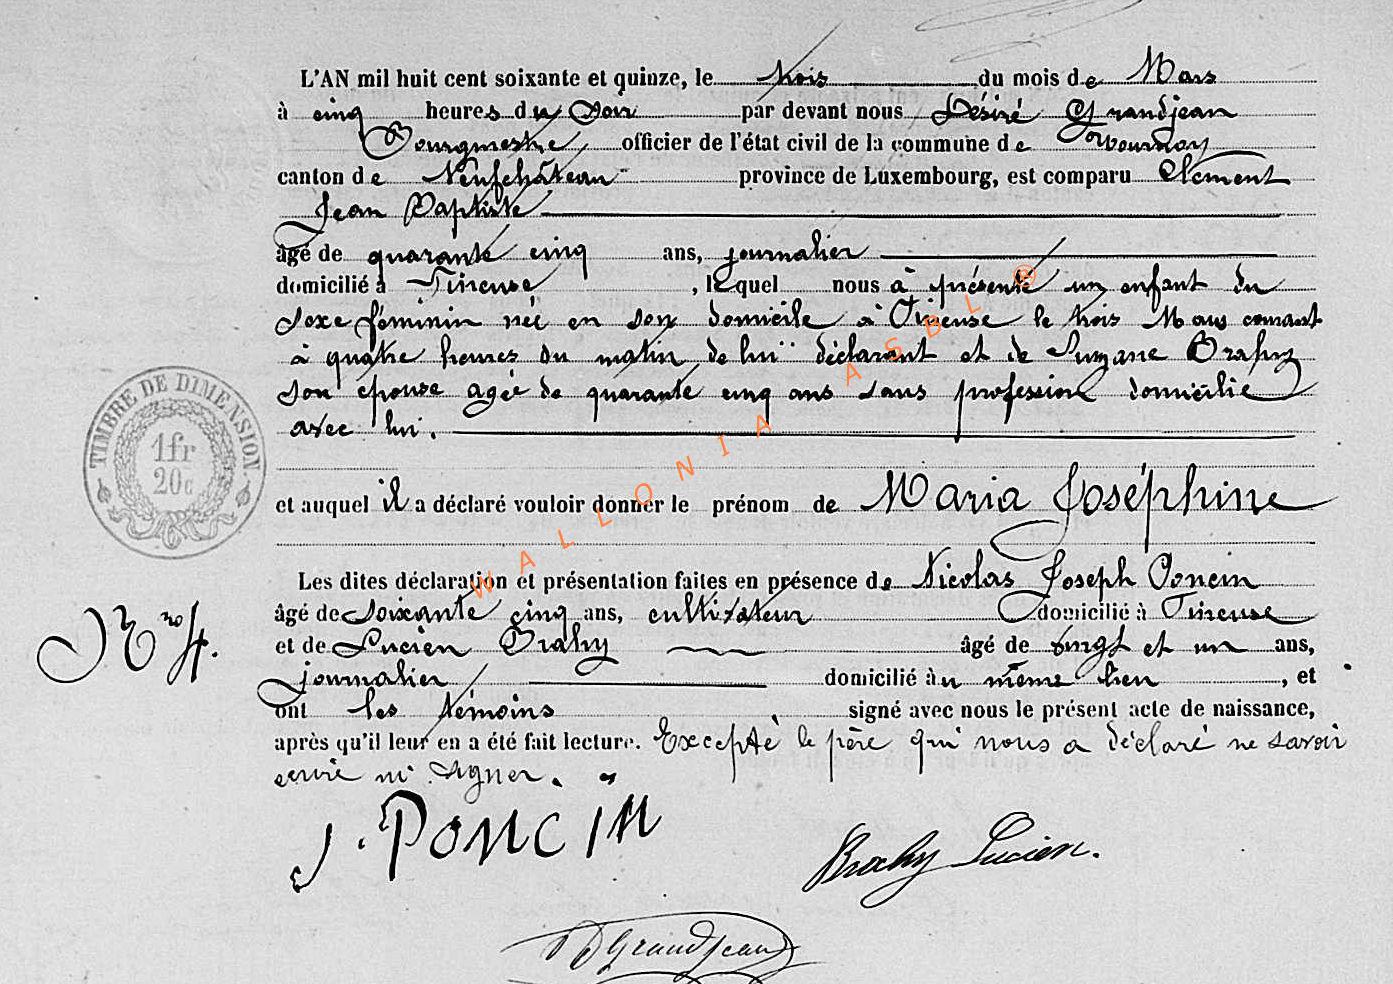 L'AN mil huit cent soixante et quinze, le trois du mois de Mars
à cinq heures du Soir par devant nous Désiré Grandjean
Bourgmestre officier de l'état civil de la commune de Tournay
canton de Neufchâteau province de Luxembourg, est comparu Clement
Jean Baptiste
âgé de quarante cinq ans, journalier
domicilié à Tineuse, lequel nous à présenté un enfant du
Sexe féminin née en son domicile à Tineuse le trois Mars courant
à quatre heures du matin de lui déclarant et de Suzane Brahy
son épouse agée de quarante cinq ans sans profession domicilié
avec lui.
et auquel il a déclaré vouloir donner le prénom de Maria Joséphine
Les dites déclaration et présentation faites en présence de Nicolas Joseph Poncin
âgé de Soixante cinq ans, cultivateur domicilié à Tineuse
N.ro 4.
et de Lucien Brahy âgé de vingt et un ans,
journalier domicilié au même lieu, et
ont les témoins signé avec nous le présent acte de naissance,
après qu'il leur en a été fait lecture. Excepté le père qui nous a déclaré ne savoir
ecrire ni Signer.
J. PONCIN
Brahy Lucien.
D Grandjean
TIMBRE DE DIMENSION
1fr
20c
WALLONIA ASBL ®